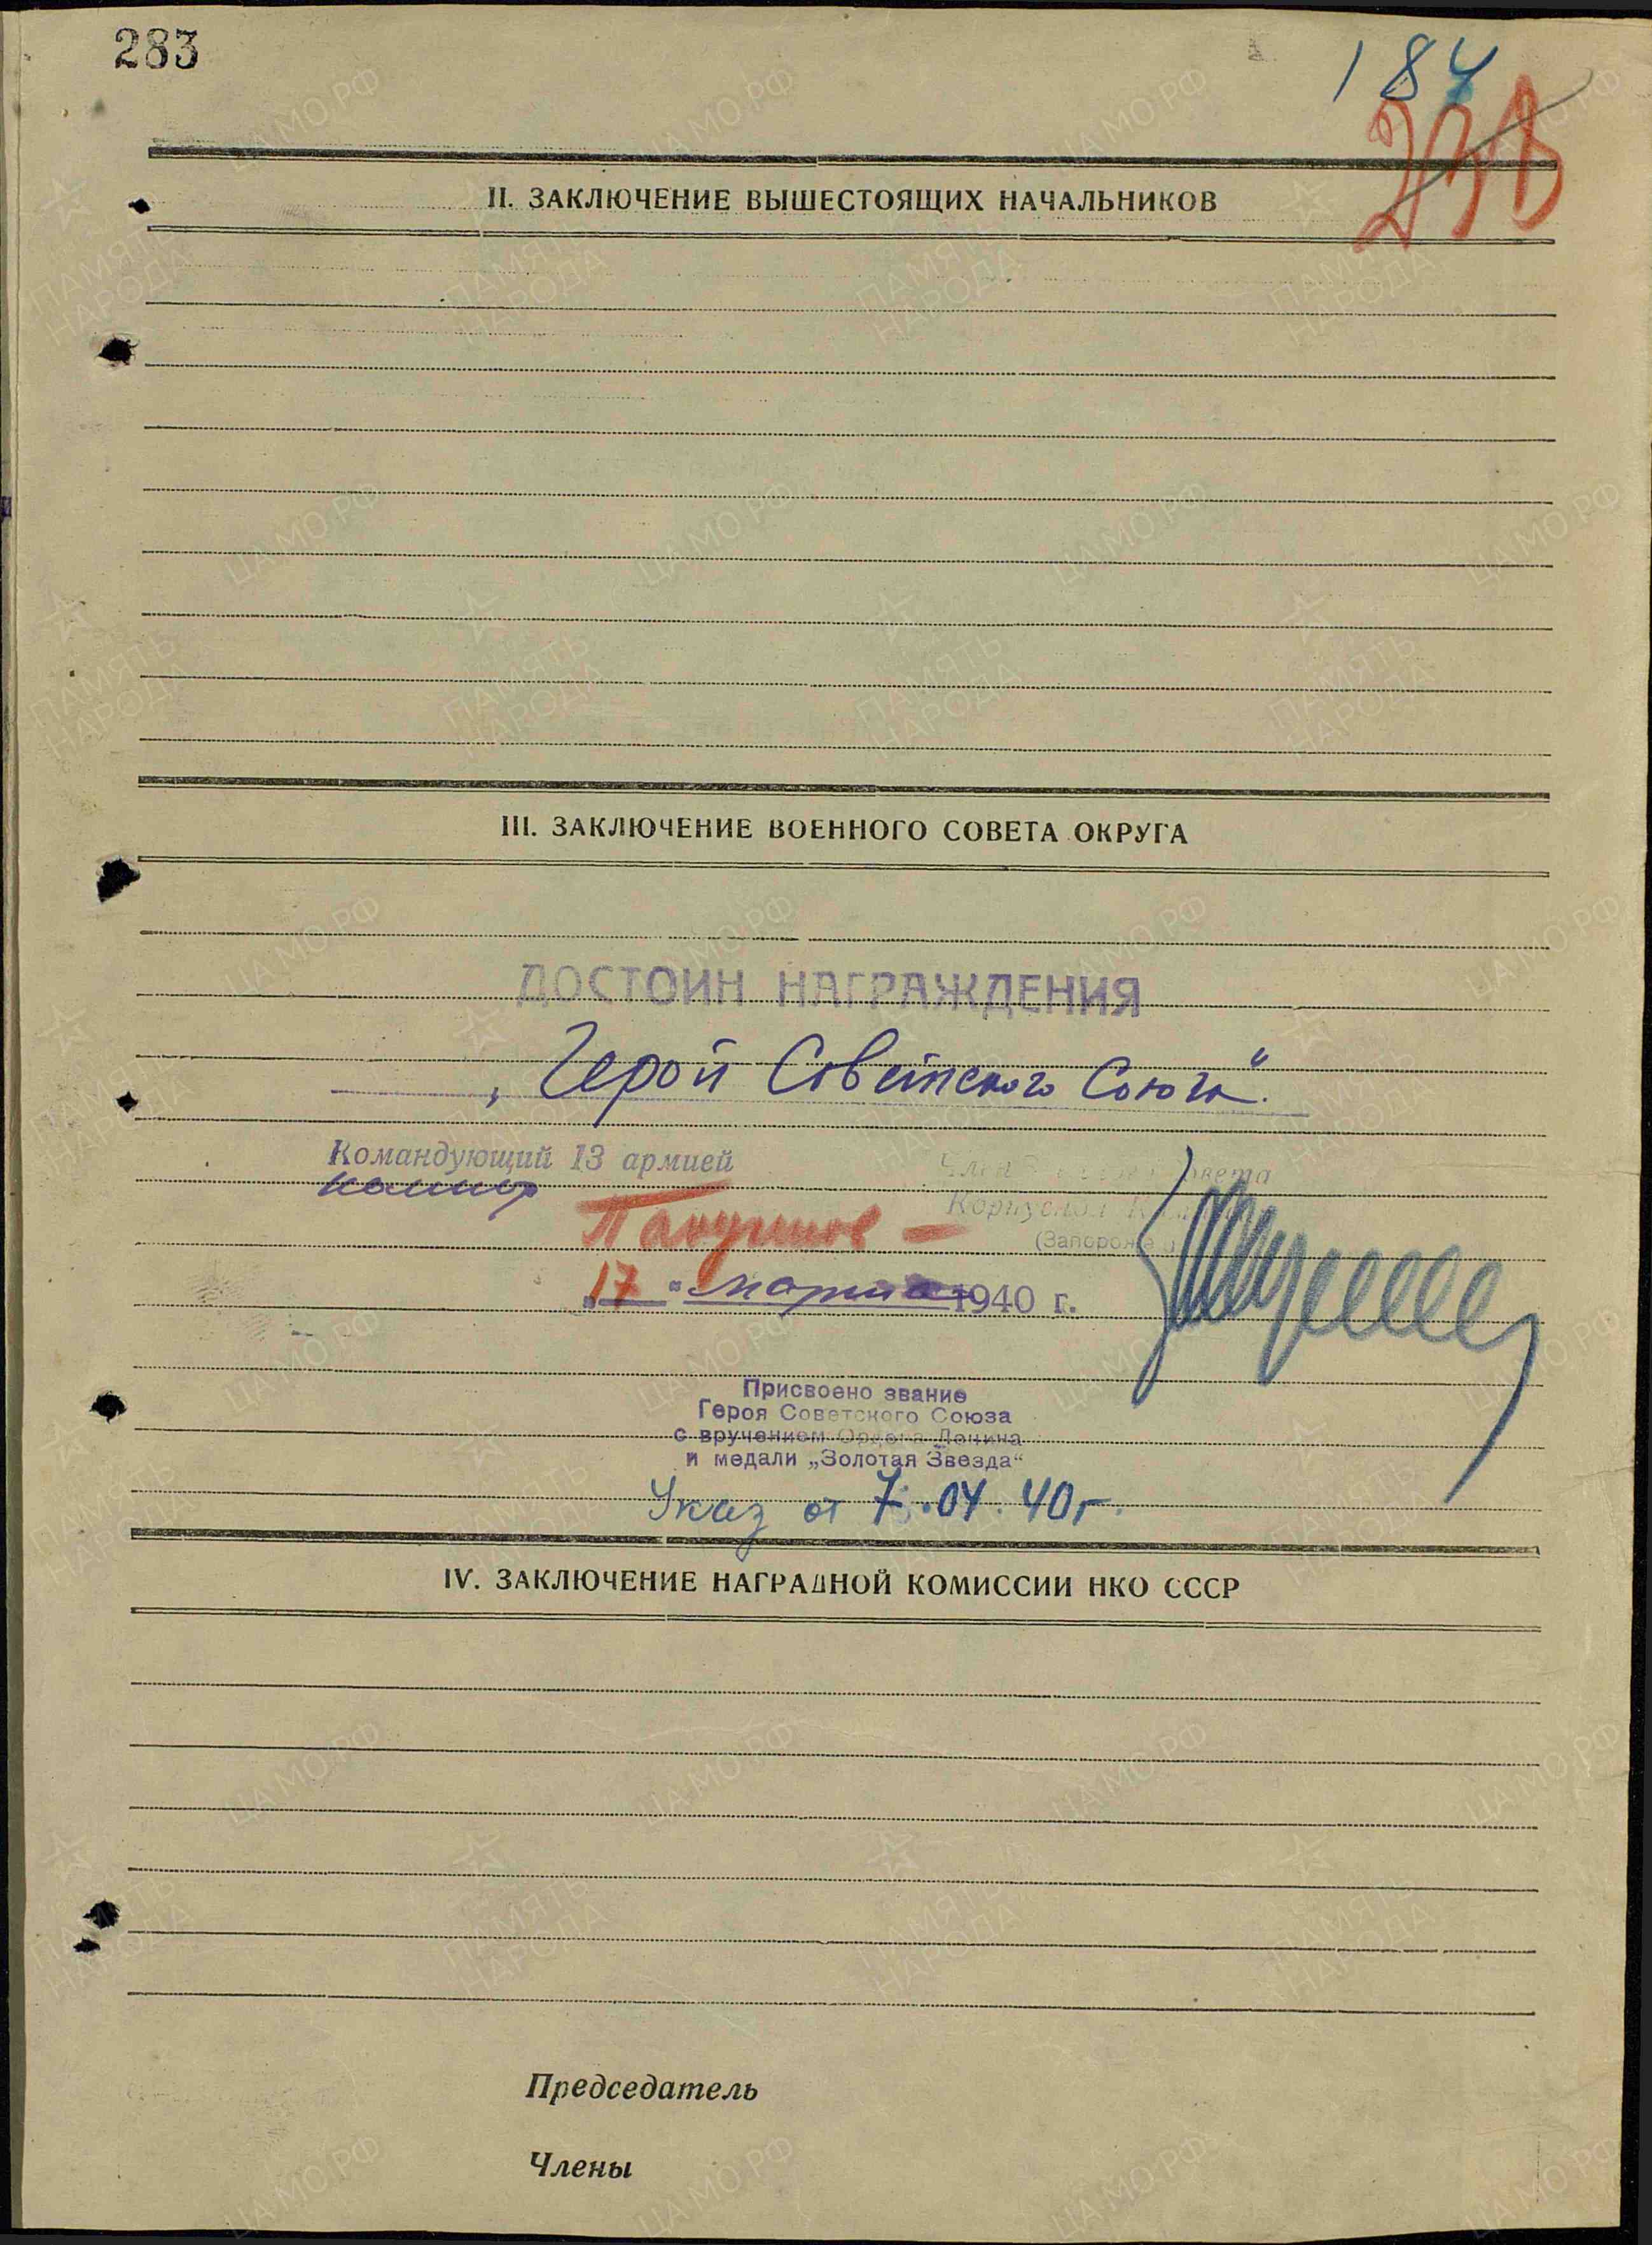 283
184
II. ЗАКЛЮЧЕНИЕ ВЫШЕСТОЯЩИХ НАЧАЛЬНИКОВ
III. ЗАКЛЮЧЕНИЕ ВОЕННОГО СОВЕТА ОКРУГА
ДОСТОИН НАГРАЖДЕНИЯ
„Герой Советского Союза“.
Командующий 13 армией
Корпусной
(Запороже
„17“ марта 1940 г.
Присвоено звание
Героя Советского Союза
с вручением Ордена Ленина
и медали „Золотая Звезда“
Указ от 7.04.40г.
IV. ЗАКЛЮЧЕНИЕ НАГРАДНОЙ КОМИССИИ НКО СССР
Председатель
Члены
ПАМЯТЬ НАРОДА
ЦАМО.РФ